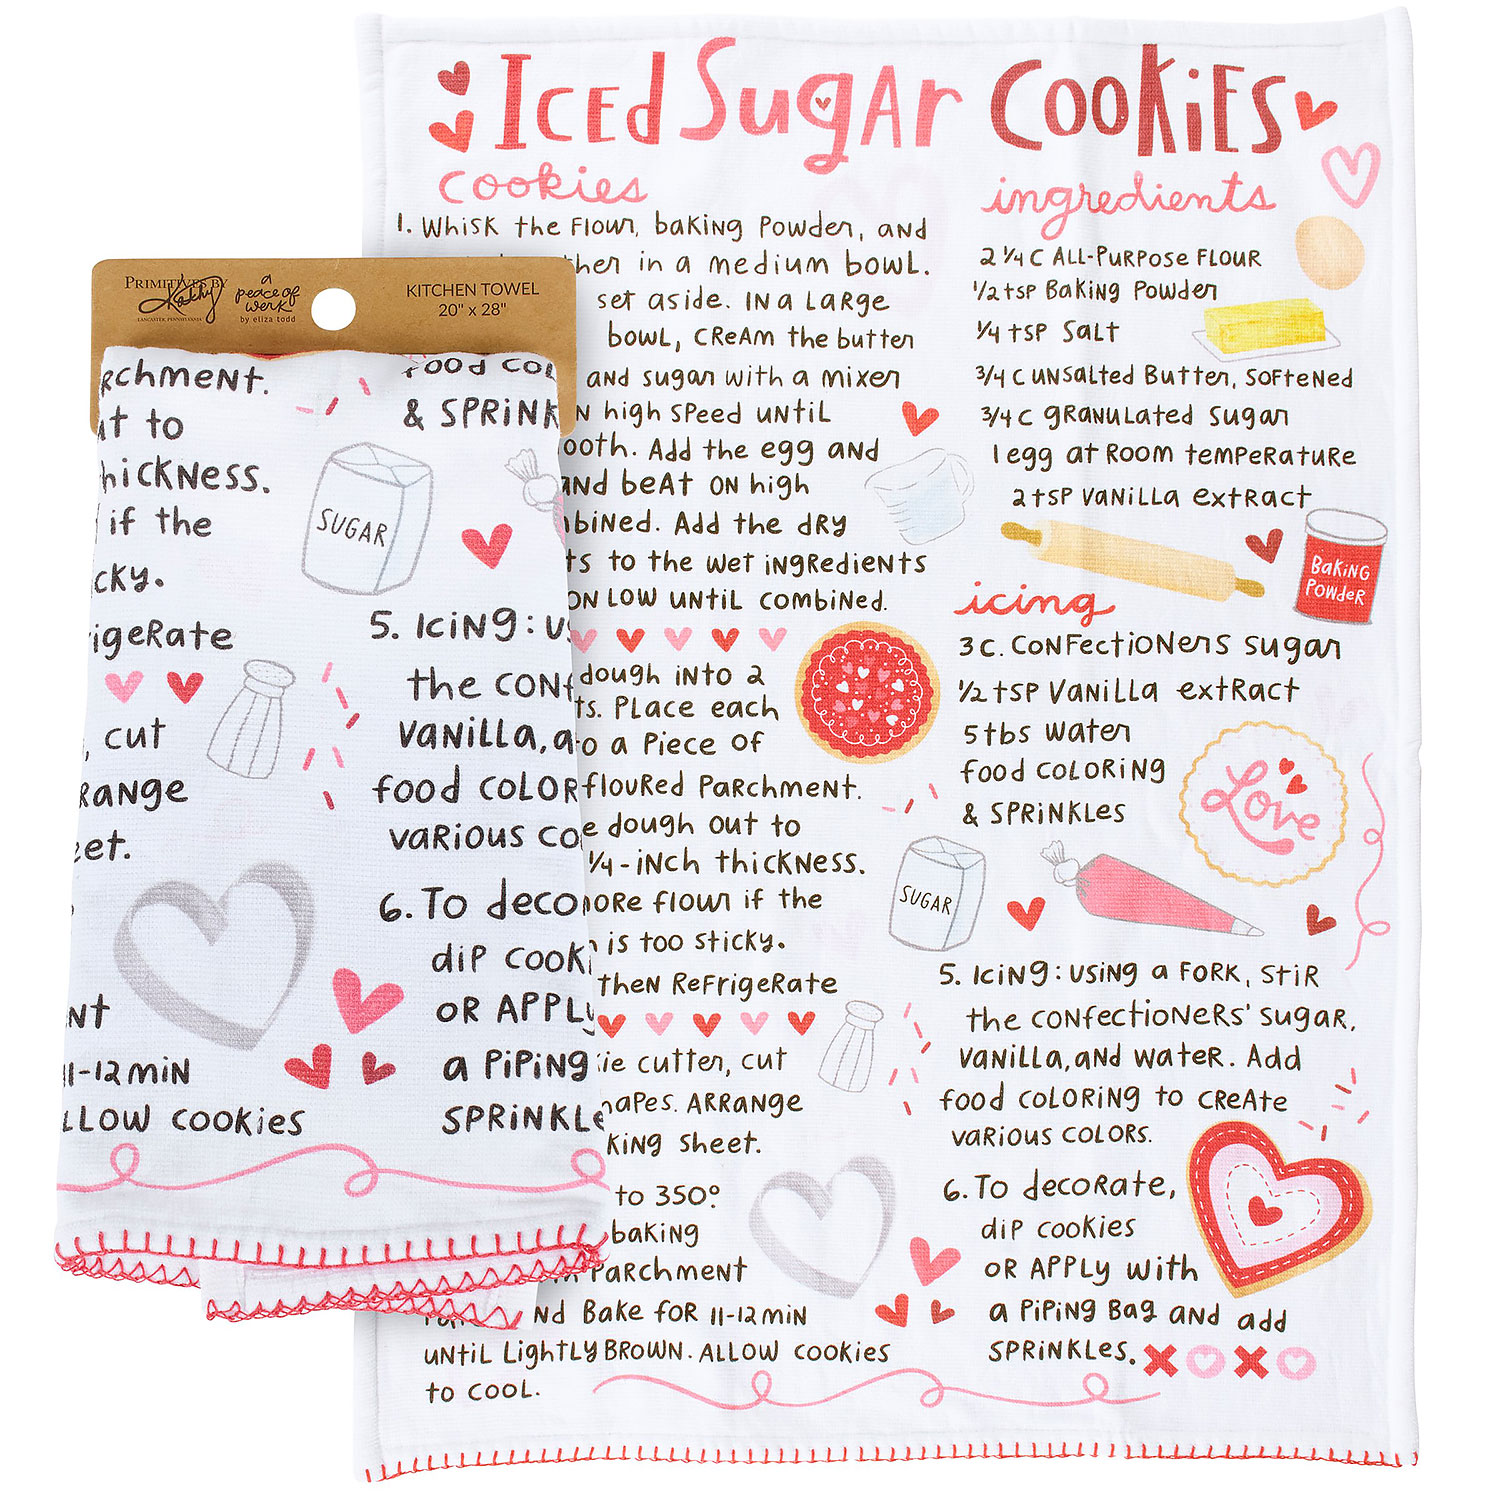 Iced Sugar Cookies
cookies
1. Whisk the flour, baking powder, and
in a medium bowl.
set aside. In a large
bowl, cream the butter
and sugar with a mixer
high speed until
Add the egg and
and beat on high
Add the dry
to the wet ingredients
on low until combined.
dough into 2
Place each
a piece of
floured parchment.
dough out to
1/4-inch thickness.
flour if the
is too sticky.
then refrigerate
cutter, cut
Arrange
sheet.
to 350°
baking
parchment
Bake for 11-12 min
until lightly brown. Allow cookies
to cool.
ingredients
2 1/4 c all-purpose flour
1/2 tsp baking powder
1/4 tsp salt
3/4 c unsalted butter, softened
3/4 c granulated sugar
1 egg at room temperature
2 tsp vanilla extract
Baking
Powder
icing
3 c. confectioners sugar
1/2 tsp vanilla extract
5 tbs water
food coloring
& sprinkles
Love
Sugar
5. Icing: using a fork, stir
the confectioners' sugar,
vanilla, and water. Add
food coloring to create
various colors.
6. To decorate,
dip cookies
or apply with
a piping bag and add
sprinkles.
Primitives by
Kathy
Lancaster, Pennsylvania
a
peace of
werk
by eliza todd
KITCHEN TOWEL
20" x 28"
to
thickness.
if the
Sugar
5. Icing:
the
vanilla,
food
various
cut
6. To
dip
or apply
11-12 min
a piping
cookies